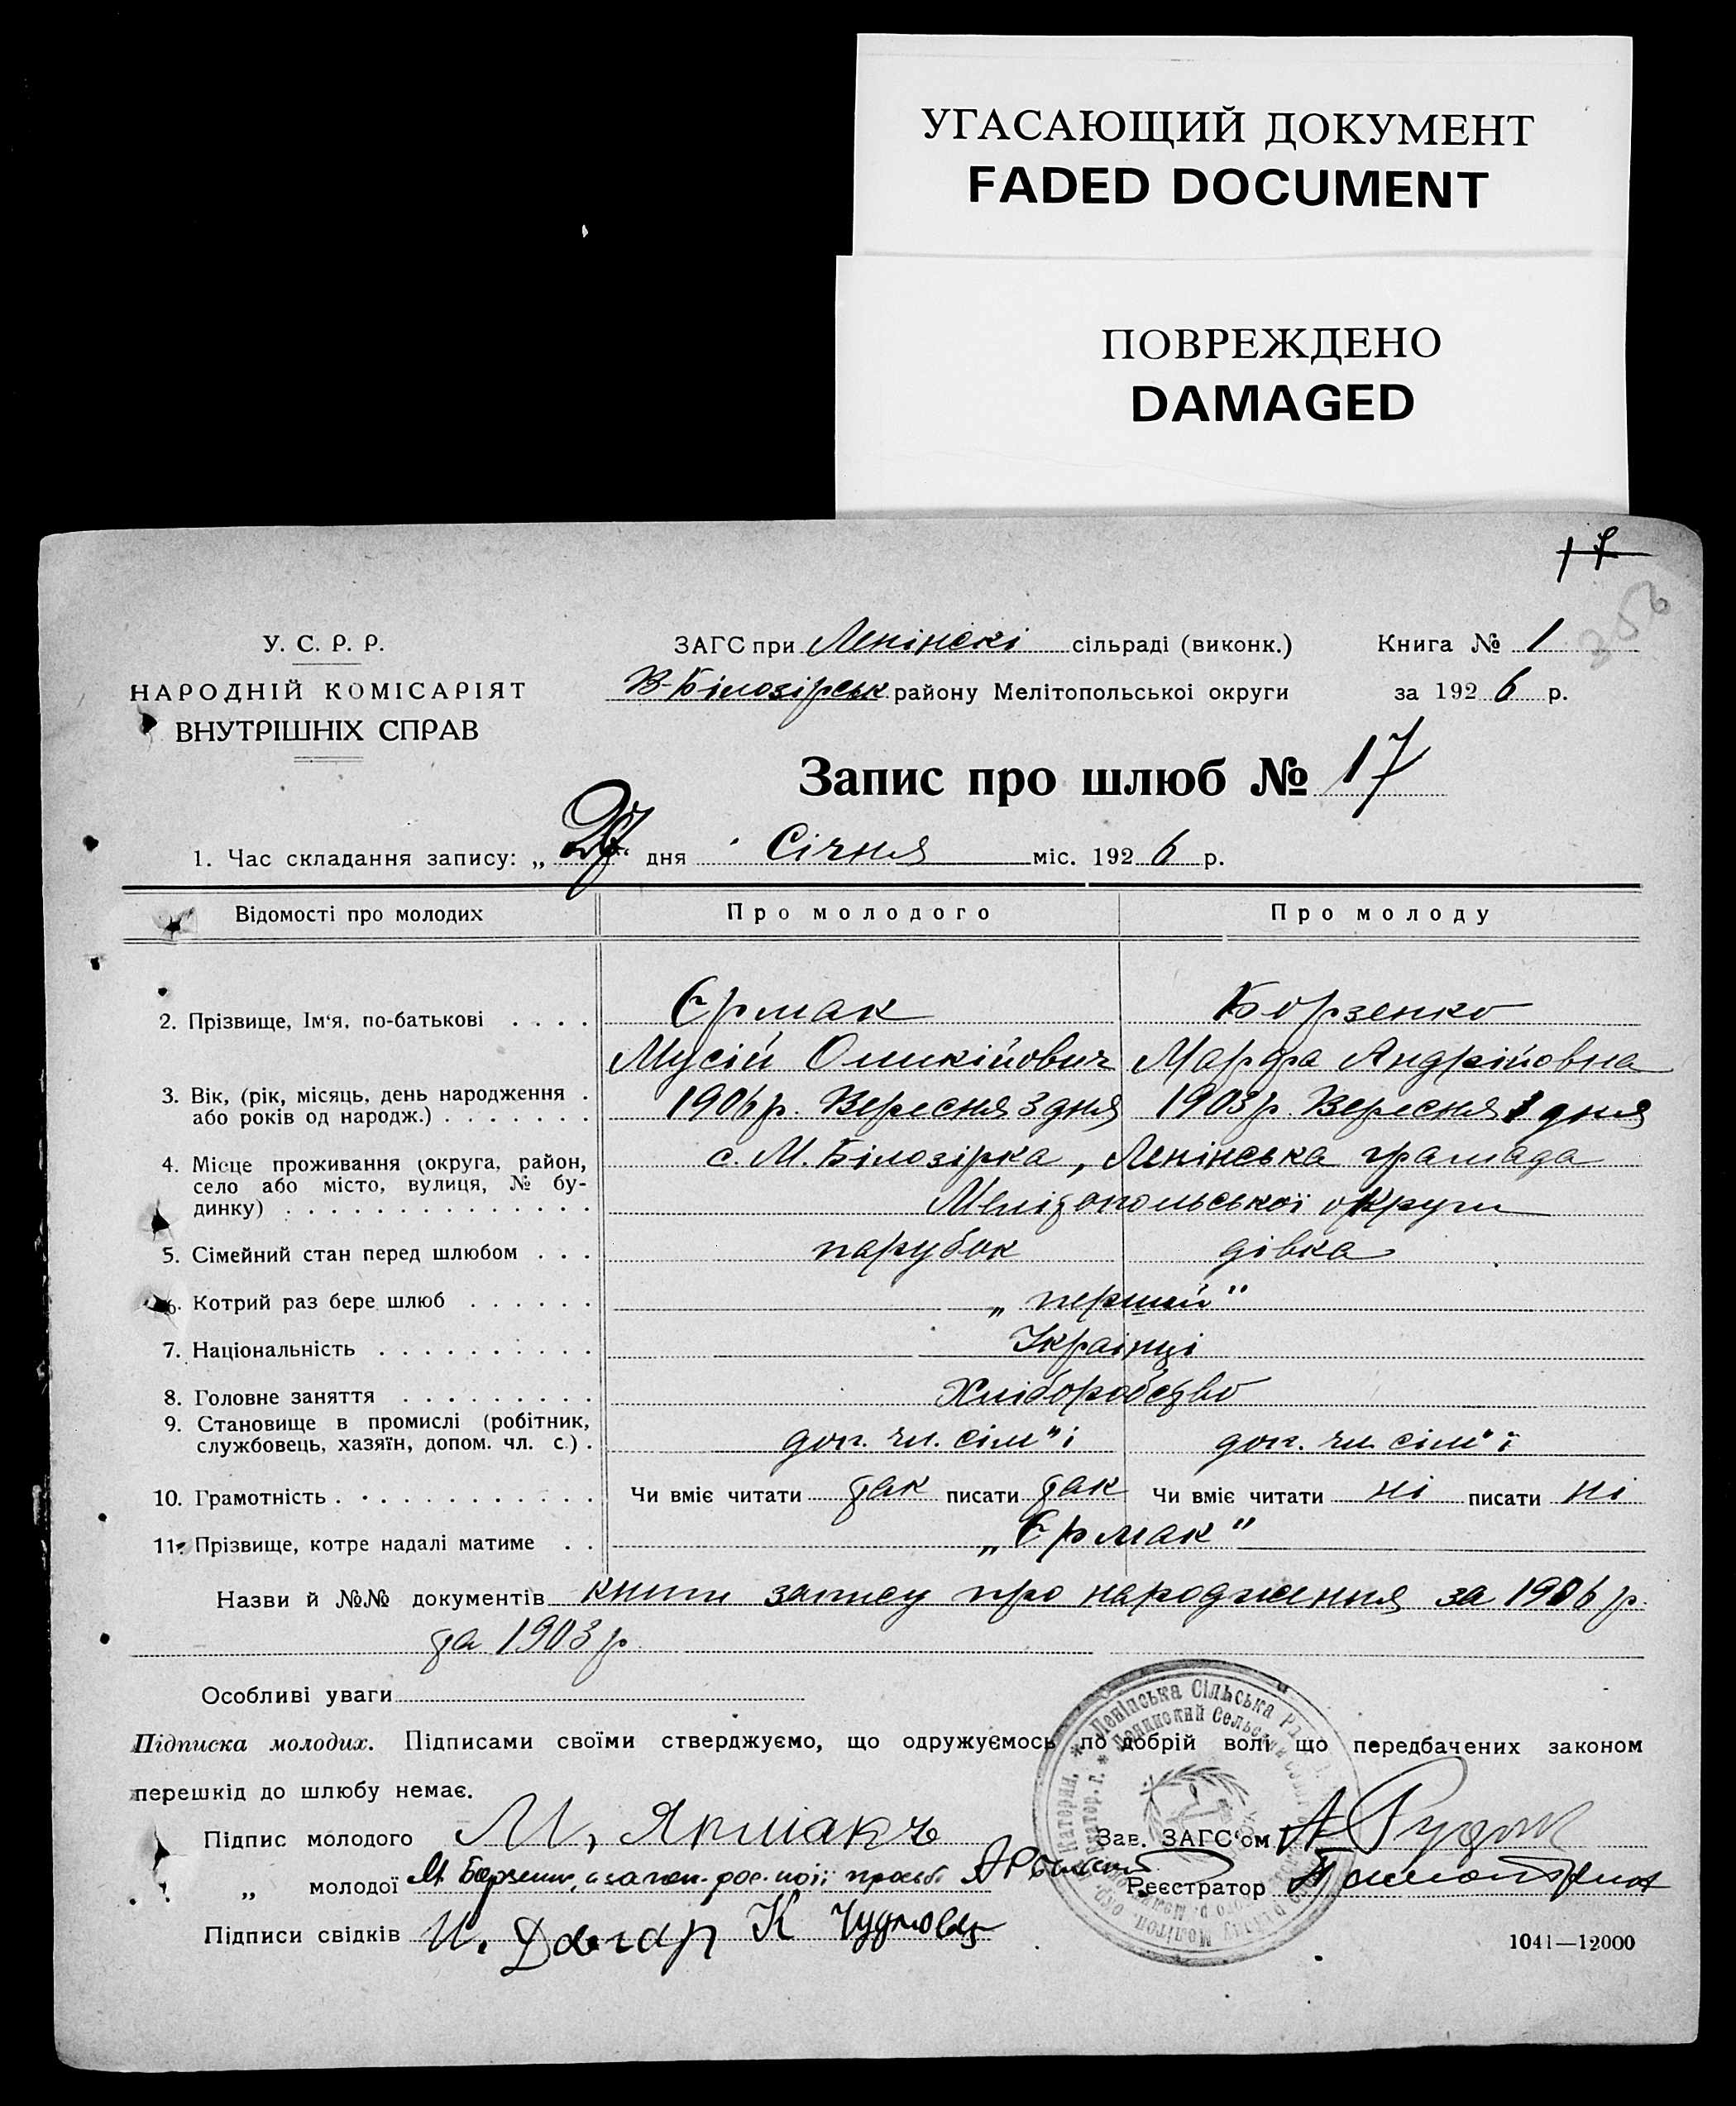 УГАСАЮЩИЙ ДОКУМЕНТ
FADED DOCUMENT
ПОВРЕЖДЕНО
DAMAGED
17
У. С. Р. Р.
НАРОДНІЙ КОМІСАРІЯТ
ВНУТРІШНІХ СПРАВ
ЗАГС при Ленінскі сільраді (виконк.) Книга № 1
В-Білозірськ району Мелітопольськоі округи за 1926 р.
Запис про шлюб № 17
1. Час складання запису: „ “ дня Січня міс. 1926 р.
Відомості про молодих Про молодого Про молоду
2. Прізвище, Ім‘я, по-батькові . . . . Єрмак Борзенко
Мусій Оликійович Марфа Андрійовна
3. Вік, (рік, місяць, день народження . 1906 р. Вересня 3 дня 1903 р. Вересня 1 дня
або років од народж.) . . . . . . .
4. Місце проживання (округа, район, с. М. Білозірка, Ленінська грамада
село або місто, вулиця, № бу-
динку) . . . . . . . . . . . . . . Мелітопольської округи
5. Сімейний стан перед шлюбом . . . парубок дівка
6. Котрий раз бере шлюб . . . . . . „перший“
7. Національність . . . . . . . . . . Українці
8. Головне заняття . . . . . . . . . Хліборобство
9. Становище в промислі (робітник,
службовець, хазяїн, допом. чл. с.) . доп. чл. сім"і доп. чл. сім"ї
10. Грамотність . . . . . . . . . . . . Чи вміє читати так писати так Чи вміє читати ні писати ні
11. Прізвище, котре надалі матиме . . „Єрмак“
Назви й №№ документів книги запису про народження за 1906 р.
та 1903 р.
Особливі уваги
Підписка молодих. Підписами своїми стверджуємо, що одружуємось по добрій волі що передбачених законом
перешкід до шлюбу немає.
Ленінська Сільська
Підпис молодого М, Ярмакъ Зав. ЗАГС‘ом А
„ молодої М Борзенко Реєстратор
Підписи свідків И. Довгар К Чудновец
1041—12000